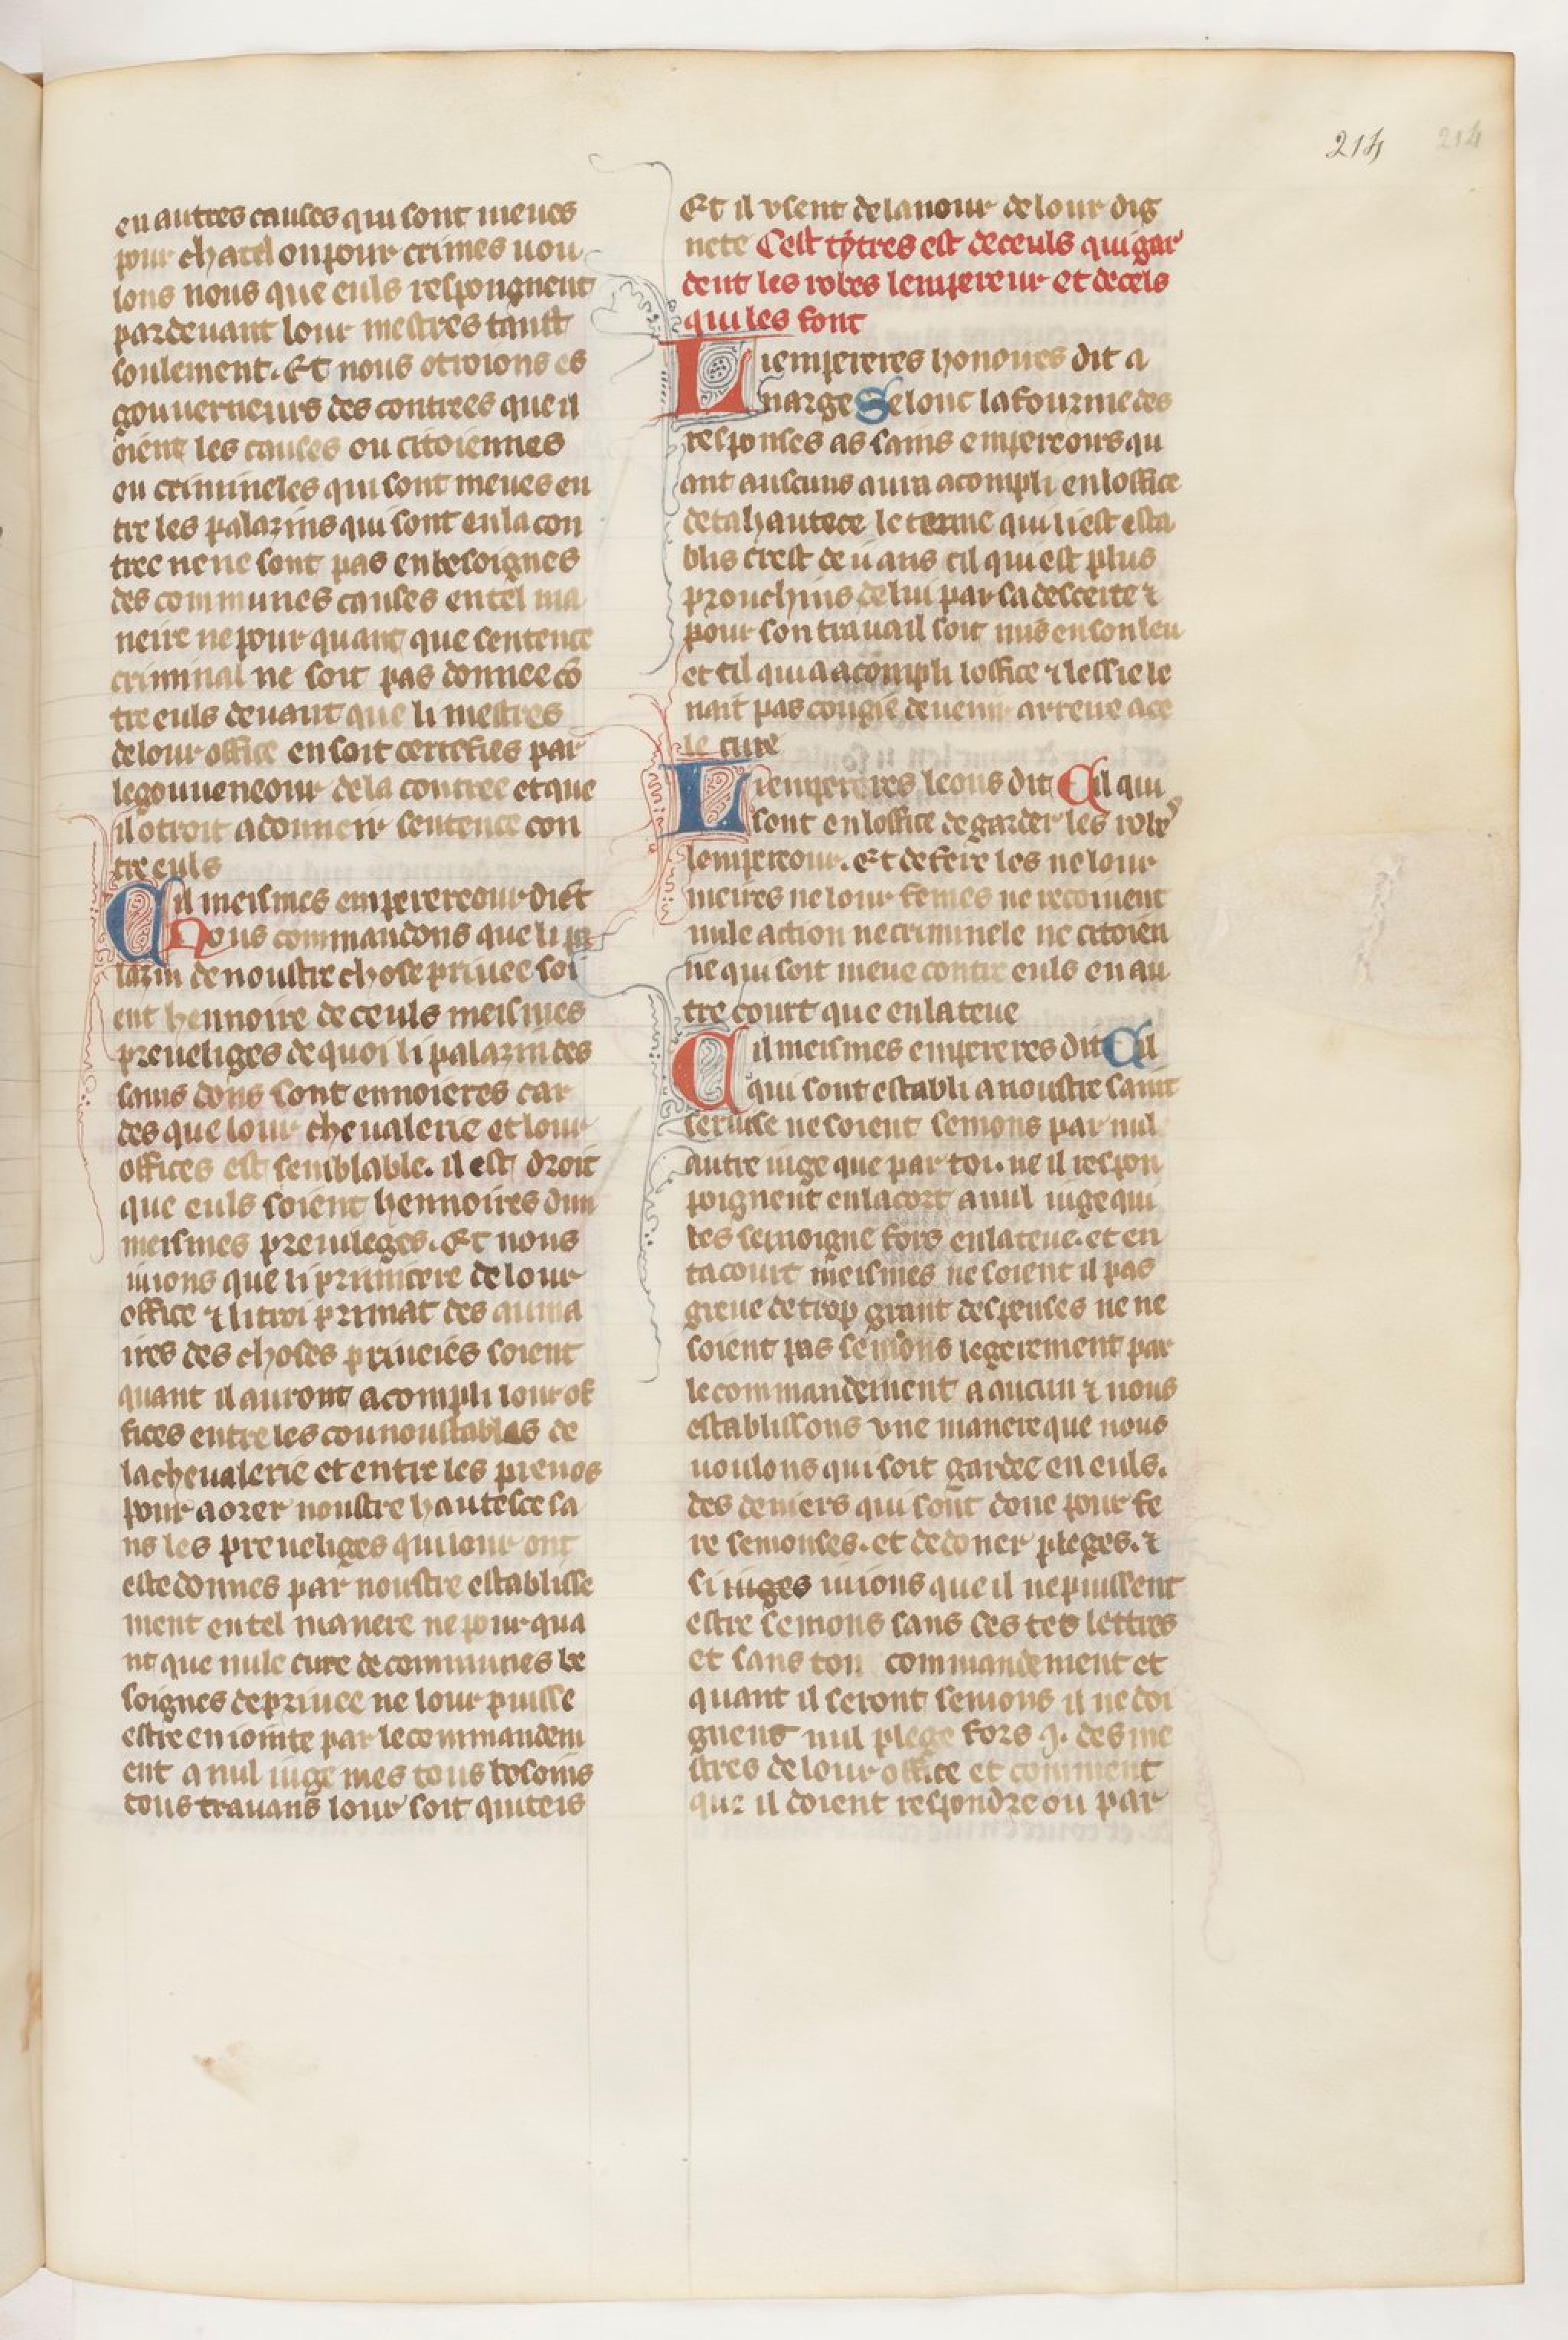 214 214
en autres causes qui sont meues
pour chatel ou pour crimes uou
lons nous que euls respongnent
par deuant lour mestres tanst
soulement. Et nous otroions es
gouuerneurs des contrees que il
oient les causes ou citoiennes
ou crimineles qui sont meues en
tre les palazins qui sont en la con
tree ne ne sont pas en besoignes
des communes causes en tel ma
neire ne pour quant que sentence
criminal ne soit pas donnee cō
tre euls deuant que li mestres
de lour office en soit certefies par
le gouueneour de la contree et que
il otroit a donneir sentence con
tre euls
Cil meismes emperereour dist
Nous commandons que li pa
lazin de noustre chose priuee soi
ent hennoire de ceuls meismes
preueliges de quoi li palazin des
sains dons sont ennoieres car
des que lour cheualerie et lour
offices est semblable. il est droit
que euls soient hennoires dun
meismes preiuleges. Et nous
iuions que li primicere de lour
office ⁊ li troi primat des auma
ires des choses priueies soient
quant il auront acompli lour of
fices entre les counoustables de
la cheualerie et entre les preuos
pour aorer noustre hautesce sa
ns les preueliges qui lour ont
este donnes par noustre establisse
ment en tel manere ne pour qua
nt que nule cure de communes be
soignes de priuee ne lour puisse
estre en iointe par le commandem
ent a nul iuge mes tous besoins
tous trauans lour soit quiteis
Et il vsent de lanour de lour dig
nete Cest tytres est de ceuls qui gar
dent les robes lempereur et de cels
qui les font
Li empereres honoues dit a
narge Selonc la fourme des
responses as sains empereours qu
ant auscuns aura acompli en loffice
de ta hautece le terme qui li est esta
blis cest de ii ans cil qui est plus
prouchins de lui par sa descerte ⁊
pour son trauail soit mis en son leu
et cil qui a acompli loffice ⁊ lessie le
nait pas congie de uenir arreue a ce
le cure
Li empereres leons dit Cil qui
sont en loffice de garder les robes
lempereour. Et de fere les ne lour
meires ne lour femes ne recoiuent
nule action ne criminele ne citoien
ne qui soit meue contre euls en au
tre court que en la teue
Cil meismes empereres dit Cil
qui sont establi a noustre saint
seruise ne soient semons par nul
autre iuge que par toi. ne il respon
poignent en la cort a nul iuge qui
les semoigne fors en la teue. et en
ta court meismes ne soient il pas
greue de trop grant despenses ne ne
soient pas semons legerement par
le commandement a aucun ⁊ nous
establissons vne manere que nous
uoulons qui soit gardee en euls.
des deniers qui sont done pour fe
re semonses. et de doner pleges. ⁊
si iuges iuions que il ne puissent
estre semons sans ces tes lettres
et sans ton commandement et
quant il seront semons il ne doi
gnent nul plege fors .j. des me
stres de lour office et comment
que il doient respondre ou par